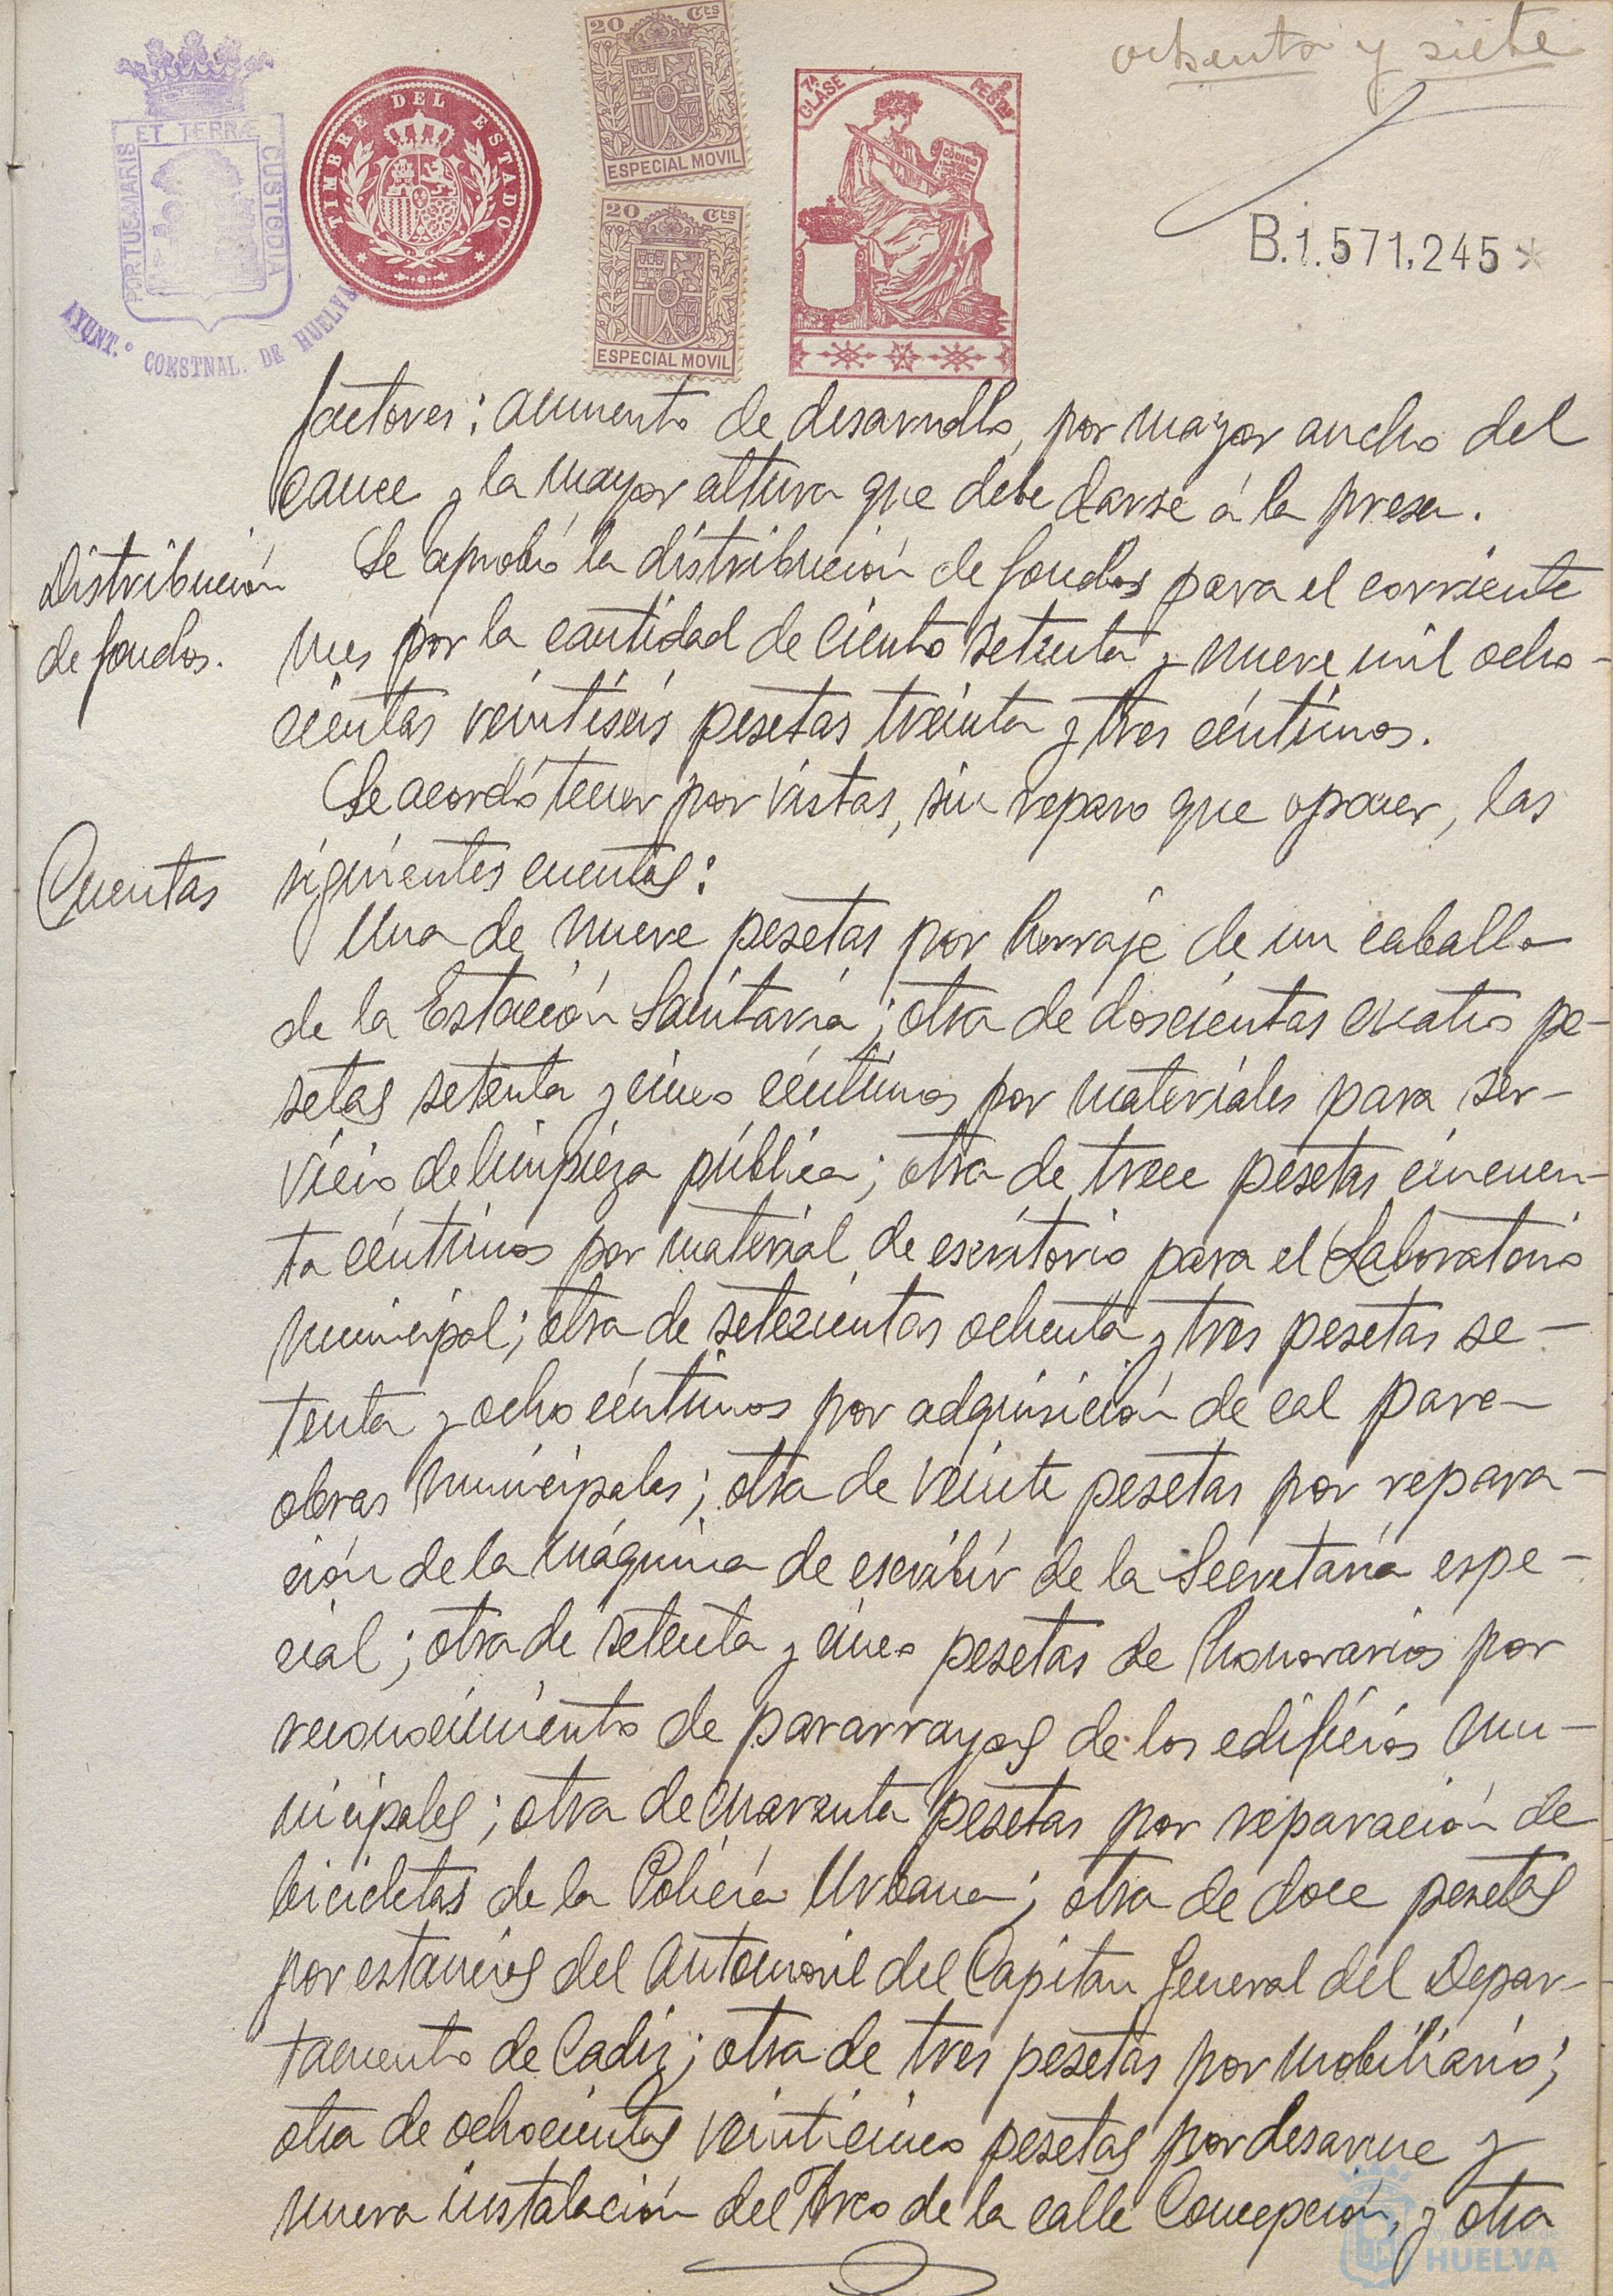 ochenta y siete
PORTUS MARIS ET TERRÆ CUSTODIA
AYUNT.º CONSTNAL. DE HUELVA
TIMBRE DEL ESTADO
20 Cts
ESPECIAL MOVIL
20 Cts
ESPECIAL MOVIL
7ª CLASE
PESETAS
CODIGO
B.1.571,245*
factores: aumento de desarrollo, por mayor ancho del
cauce y la mayor altura que debe darse á la presa.
Distribución
de fondos.
Se aprobó la distribución de fondos para el corriente
mes por la cantidad de ciento setenta y nueve mil ocho-
cientas veintiseis pesetas treinta y tres céntimos.
Se acordó tener por vistas, sin reparo que oponer, las
Cuentas
siguientes cuentas:
Una de nueve pesetas por herraje de un caballo
de la Estación Sanitaria; otra de doscientas cuatro pe-
setas setenta y cinco céntimos por materiales para ser-
vicio de limpieza pública; otra de trece pesetas cincuen-
ta céntimos por material de escritorio para el Laboratorio
municipal; otra de setecientas ochenta y tres pesetas se-
tenta y ocho céntimos por adquisición de cal para
obras municipales; otra de veinte pesetas por repara-
ción de la máquina de escribir de la Secretaría espe-
cial; otra de setenta y cinco pesetas de honorarios por
reconocimiento de pararrayos de los edificios mu-
nicipales; otra de cuarenta pesetas por reparación de
bicicletas de la Policía Urbana; otra de doce pesetas
por estancias del automovil del Capitan General del Depar-
tamento de Cadiz; otra de tres pesetas por mobiliario;
otra de ochocientas veinticinco pesetas por desarme y
nueva instalación del Arco de la calle Concepción, y otra
HUELVA